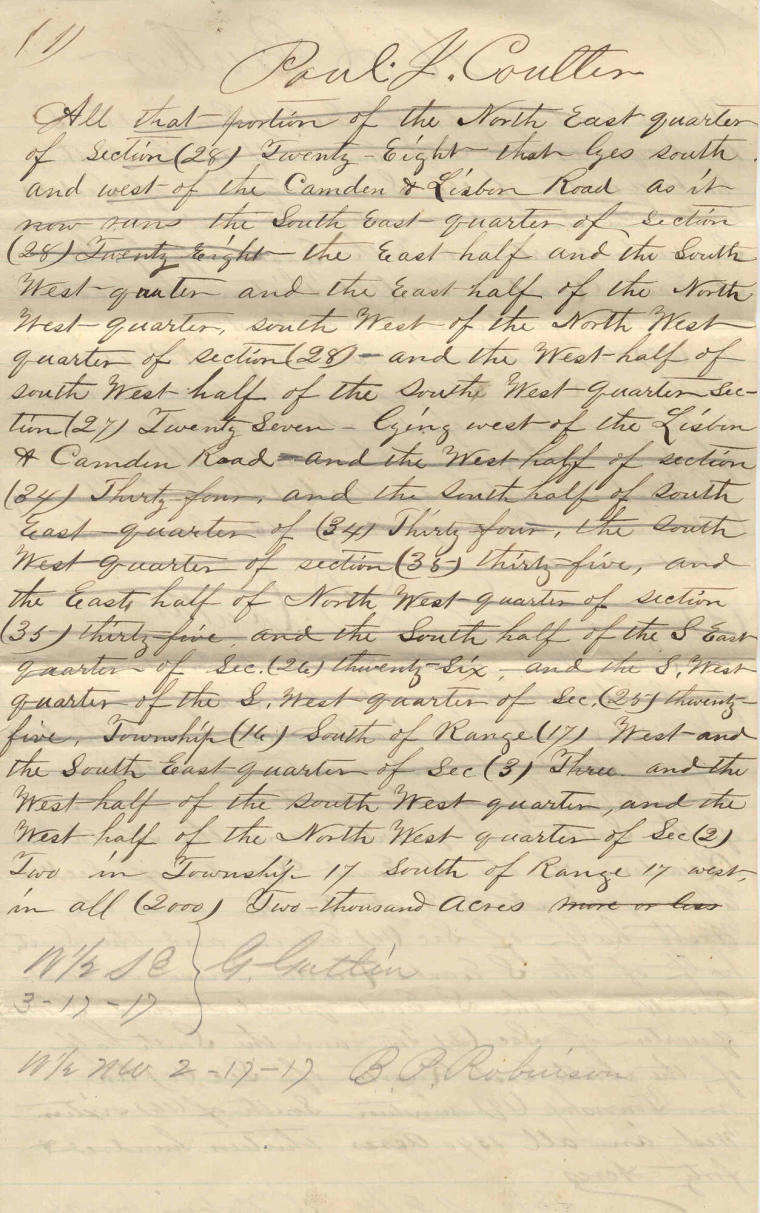 (1)
Paul. J. Coulter
All that portion of the North East quarter
of Section (28) Twenty-Eight that lyes south
and west of the Camden & Lisbon Road as it
now runs the South East quarter of Section
(28) Twenty Eight - the East half and the South
West quater and the East half of the North
West quarter, south West of the North West
quarter of section (28) - and the West half of
south West half of the South West quarter Sec-
tion (27) Twenty Seven - lying west of the Lisbon
& Camden Road - and the West half of section
(34) Thirty four, and the South half of South
East quarter of (34) Thirty four, the South
West quarter of section (35) thirty-five, and
the East half of North West quarter of section
(35) thirty-five, and the South half of the S East
quarter of Sec. (26) thwenty-Six, and the S. West
quarter of the S. West quarter of Sec. (25) thwenty-
five, Township (16) South of Range (17) West and
the South East quarter of Sec (3) Three and the
West half of the South West quarter, and the
West half of the North West quarter of Sec (2)
Two in Township 17 South of Range 17 west,
in all (2000) Two thousand Acres more or less
W½ SE } G. Gatlin
3-17-17
W½ NW 2-17-17 B. P. Robinson